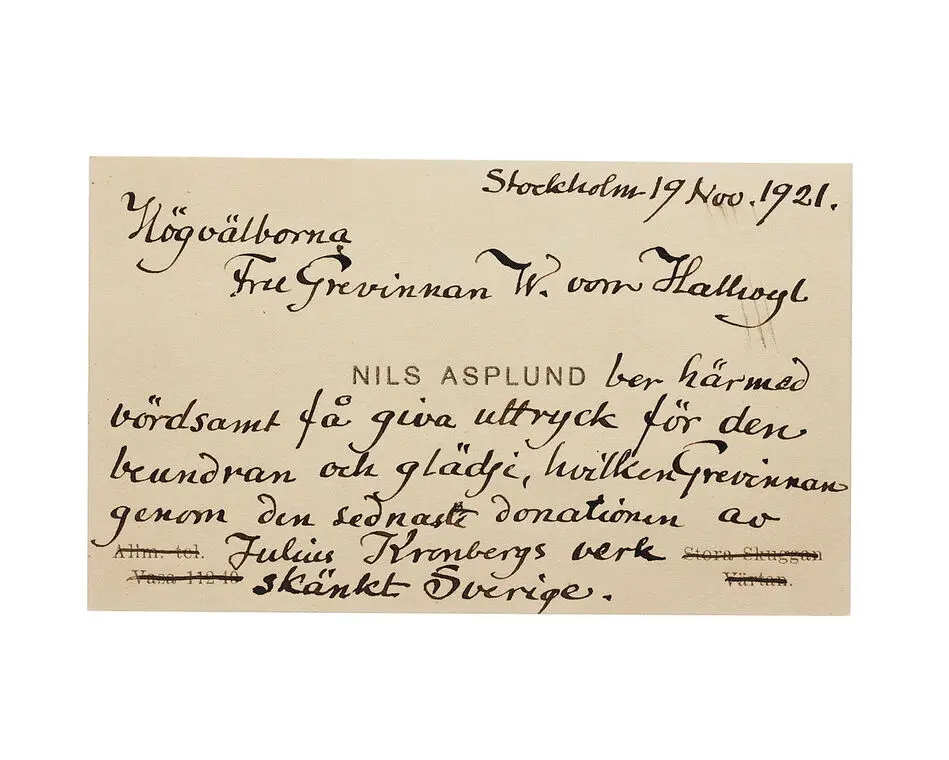 Stockholm 19 Nov. 1921.
Högvälborna
Fru Grevinnan W. vom Hallwyl
NILS ASPLUND ber härmed
vördsamt få giva uttryck för den
beundran och glädje, hvilken Grevinnan
genom den sednaste donationen av
Allm. tel. Julius Kronbergs verk Stora Skuggan
Vasa 112 40 skänkt Sverige. Värtan.